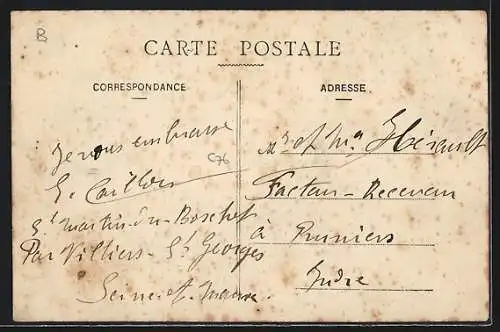 B
CARTE POSTALE
CORRESPONDANCE
ADRESSE
Je vous embrasse
C76
St Martin-du-Boschet
Par Villiers-St Georges
Seine-et-Marne
Mr et Ma Hérault
Facteur-Receveur
à Pruniers
Indre